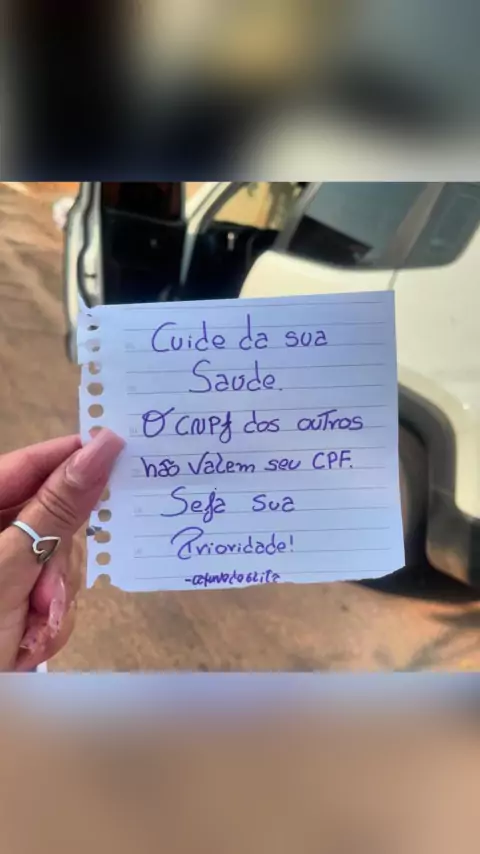 Cuide da sua
Saude.
O CNPJ dos outros
não Valem seu CPF.
Seja sua
Prioridade!